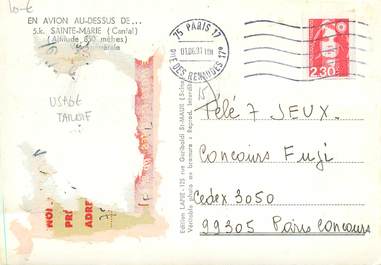 10-€
EN AVION AU-DESSUS DE...
5.k. SAINTE-MARIE (Cantal)
(Altitude 850 mètres)
Vue générale
USAGE
TARDIF
75 PARIS 17
RUE DES RENAUDES 17e
2,30
15
Télé 7 JEUX.
Concours Fuji
Cedex 3050
99305 Paris Concours
NOM
PRÉ
ADRE
75
Edition LAPIE - 125 rue Garibaldi St-MAUR (Seine)
Véritable photo au bromure - Reprod. Interdite